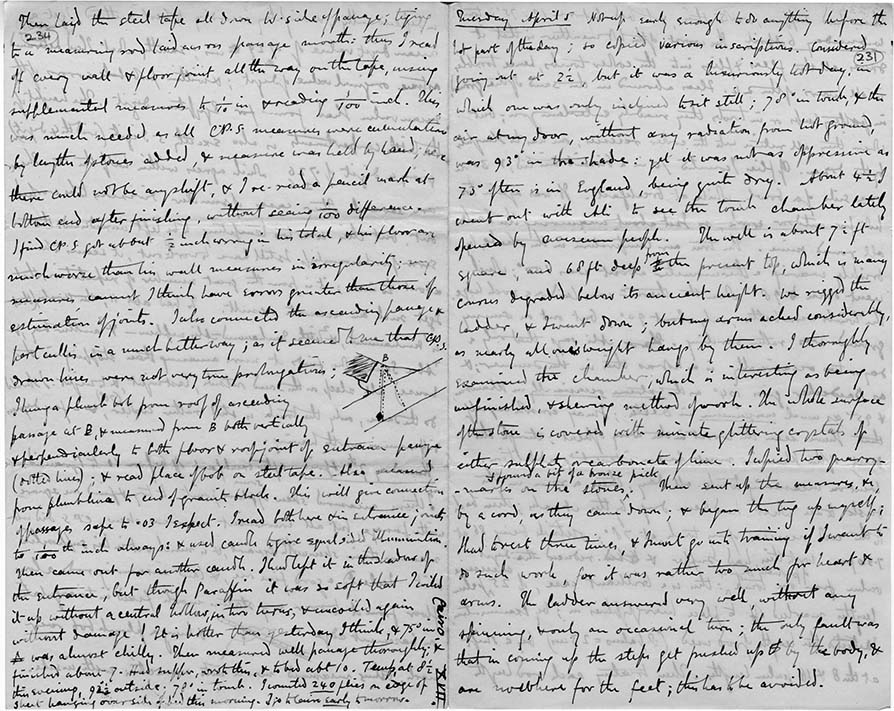 234
Then laid the steel tape all down W. side of passage; tying
to a measuring rod laid across passage mouth: thus I read
off every wall & floor joint all the way on the tape, using
supplemental measures to 1/10 in & reading 1/100 inch. This
was much needed as all C.P.S. measures were cumulative
by lengths of stones added, & measure was held by hand;
there could not be any shift, & I re-read a pencil mark at
bottom end after finishing, without seeing 1/100 difference.
I find C.P.S. got about ½ inch wrong in his total, & his floor are
much worse than his wall measures in irregularity;
measures cannot I think have errors greater than those of
estimation of joints. I also connected the ascending passage &
portcullis in a much better way; as it seemed to me that C.P.S.
drawn lines were not very true prolongations;
I hung a plumb bob from roof of ascending
passage at B, & measured from B both vertically
& perpendicularly to both floor & roof joint of entrance passage
(dotted lines); & read place of bob on steel tape. Also measured
from plumb line to end of granite block. This will give connection
of passages safe to .03 I expect. I read both here & in entrance joints
to 1/100 th inch always: & used candle to give equal sided illumination.
Then came out for another candle. I had left it in the shadow of
the entrance, but though Paraffin it was so soft that I coiled
it up without a central hollow, in two turns, & uncoiled again
without damage! It is hotter than yesterday I think, & 75° in
was almost chilly. Then measured well passage thoroughly; &
finished about 7. Had supper, wrote this, & to bed abt 10. Temp. at 8½
this evening, 92½ outside: 79° in tomb. I counted 240 flies on edge of
sheet hanging over side of this morning. I go to Cairo early to-morrow.
B
Cairo XVII.
231
Tuesday April 5 Not up early enough to do anything before the
hot part of the day; so copied various inscriptions. Considered
going out at 2½, but it was a luxuriously hot day, in
which one was only inclined to sit still; 78° in tomb, & the
air at my door, without any radiation from hot ground,
was 93° in the shade: yet it was not as oppressive as
75° often is in England, being quite dry. About 4½ I
went out with Ali to see the tomb chamber lately
opened by museum people. The well is about 7½ ft
square, and 68 ft deep from the present top, which is many
courses degraded below its ancient height. We rigged the
ladder, & I went down; but my arms ached considerably,
as nearly all one's weight hangs by them. I thoroughly
examined the chamber, which is interesting as being
unfinished, & shewing method of work. The whole surface
of the stone is covered with minute glittering crystals of
either sulphate or carbonate of lime. I copied two quarry-
-marks on the stones. I found a bit of a bronze pick Then sent up the measures, &c
by a cord, as they came down; & began the tug up myself;
I had to rest three times, & must go into training if I want to
do such work, for it was rather too much for heart &
arms. The ladder answered very well, without any
spinning, & only an occasional turn; the only fault was
that in coming up the steps get pushed up by the body, &
are nowhere for the feet; this has to be avoided.